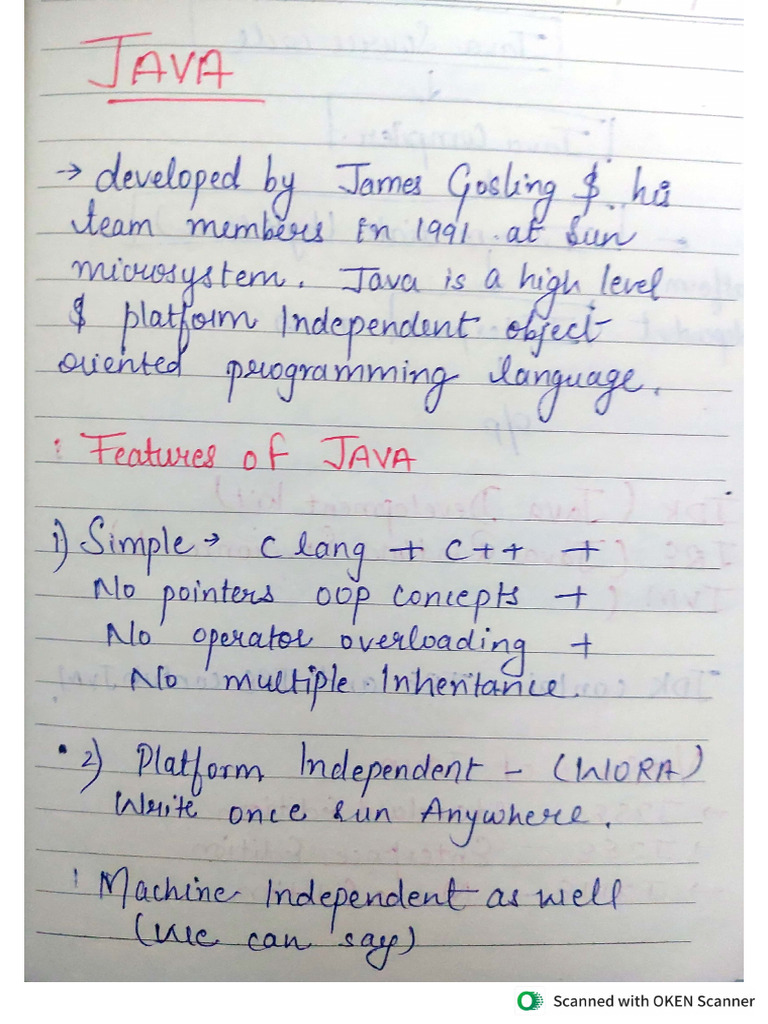 JAVA
→ developed by James Gosling & his
team members in 1991 at Sun
microsystem. Java is a high level
& platform Independent object
oriented programming language.
: Features of JAVA
1) Simple → C lang + C++ +
No pointers oop concepts +
No operator overloading +
No multiple Inheritance.
• 2) Platform Independent - (WORA)
Write once run Anywhere.
: Machine Independent as well
(we can say)
Scanned with OKEN Scanner